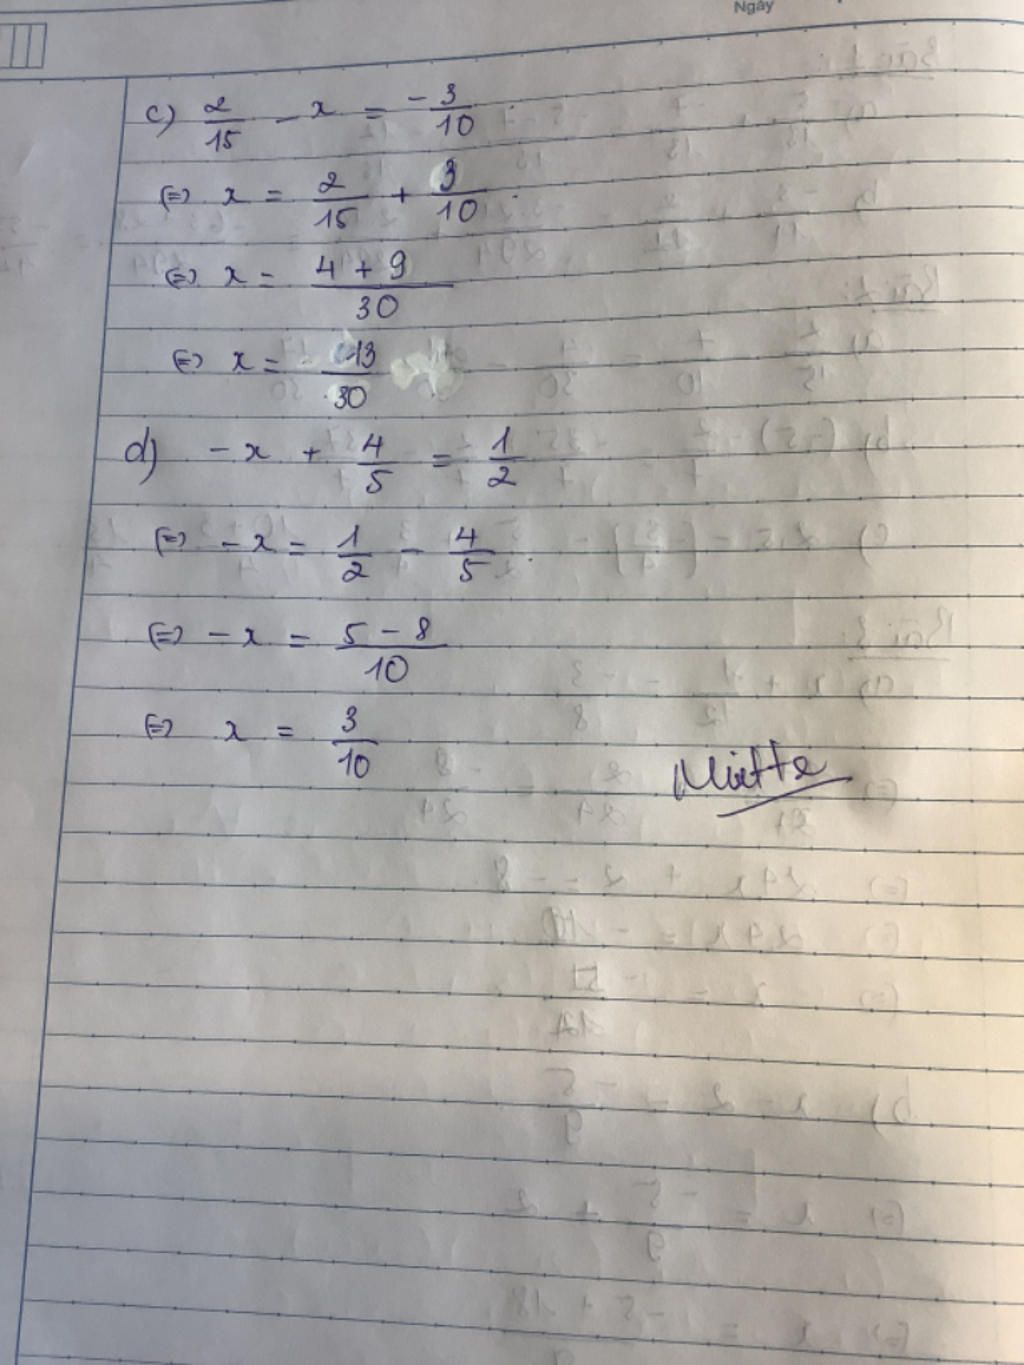 Ngày
c) 2/15 - x = -3/10
(=) x = 2/15 + 3/10
(=) x = (4 + 9)/30
(=) x = 13/30
d) -x + 4/5 = 1/2
(=) -x = 1/2 - 4/5
(=) -x = (5 - 8)/10
(=) x = 3/10